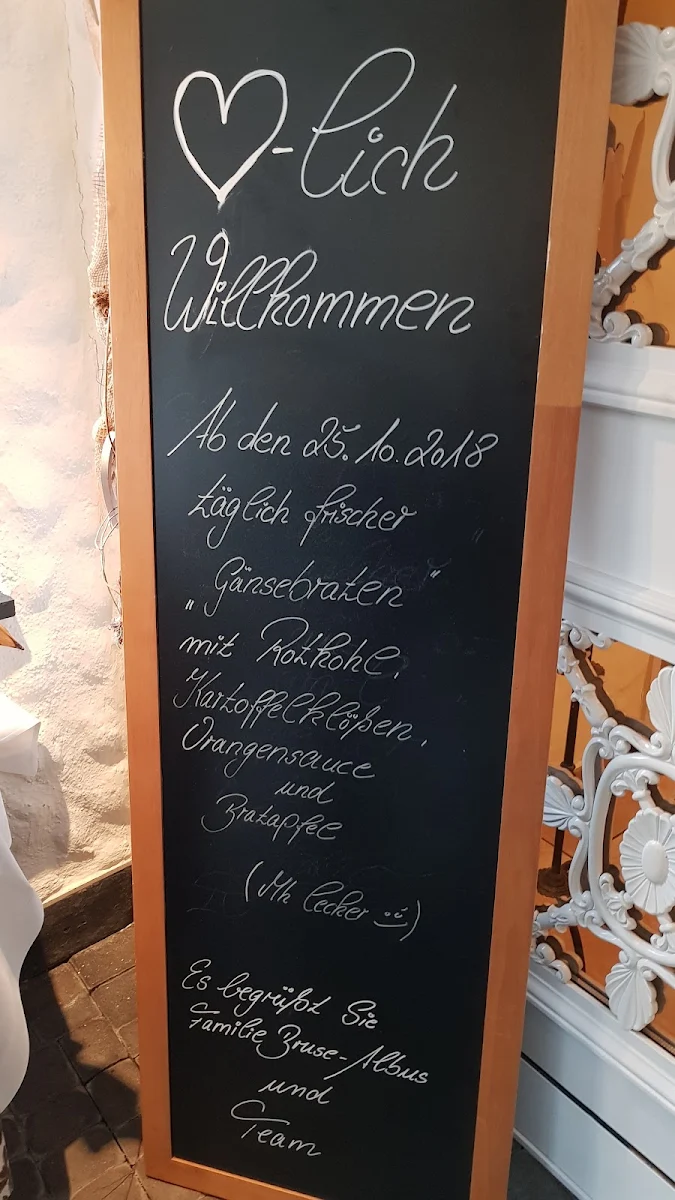 ♡-lich
Willkommen
Ab den 25.10.2018
täglich frischer
„Gänsebraten“
mit Rotkohl,
Kartoffelklößen,
Orangensauce
und
Bratapfel
(Mh lecker ü)
Es begrüßt Sie
Familie Bruse-Albus
und
Team